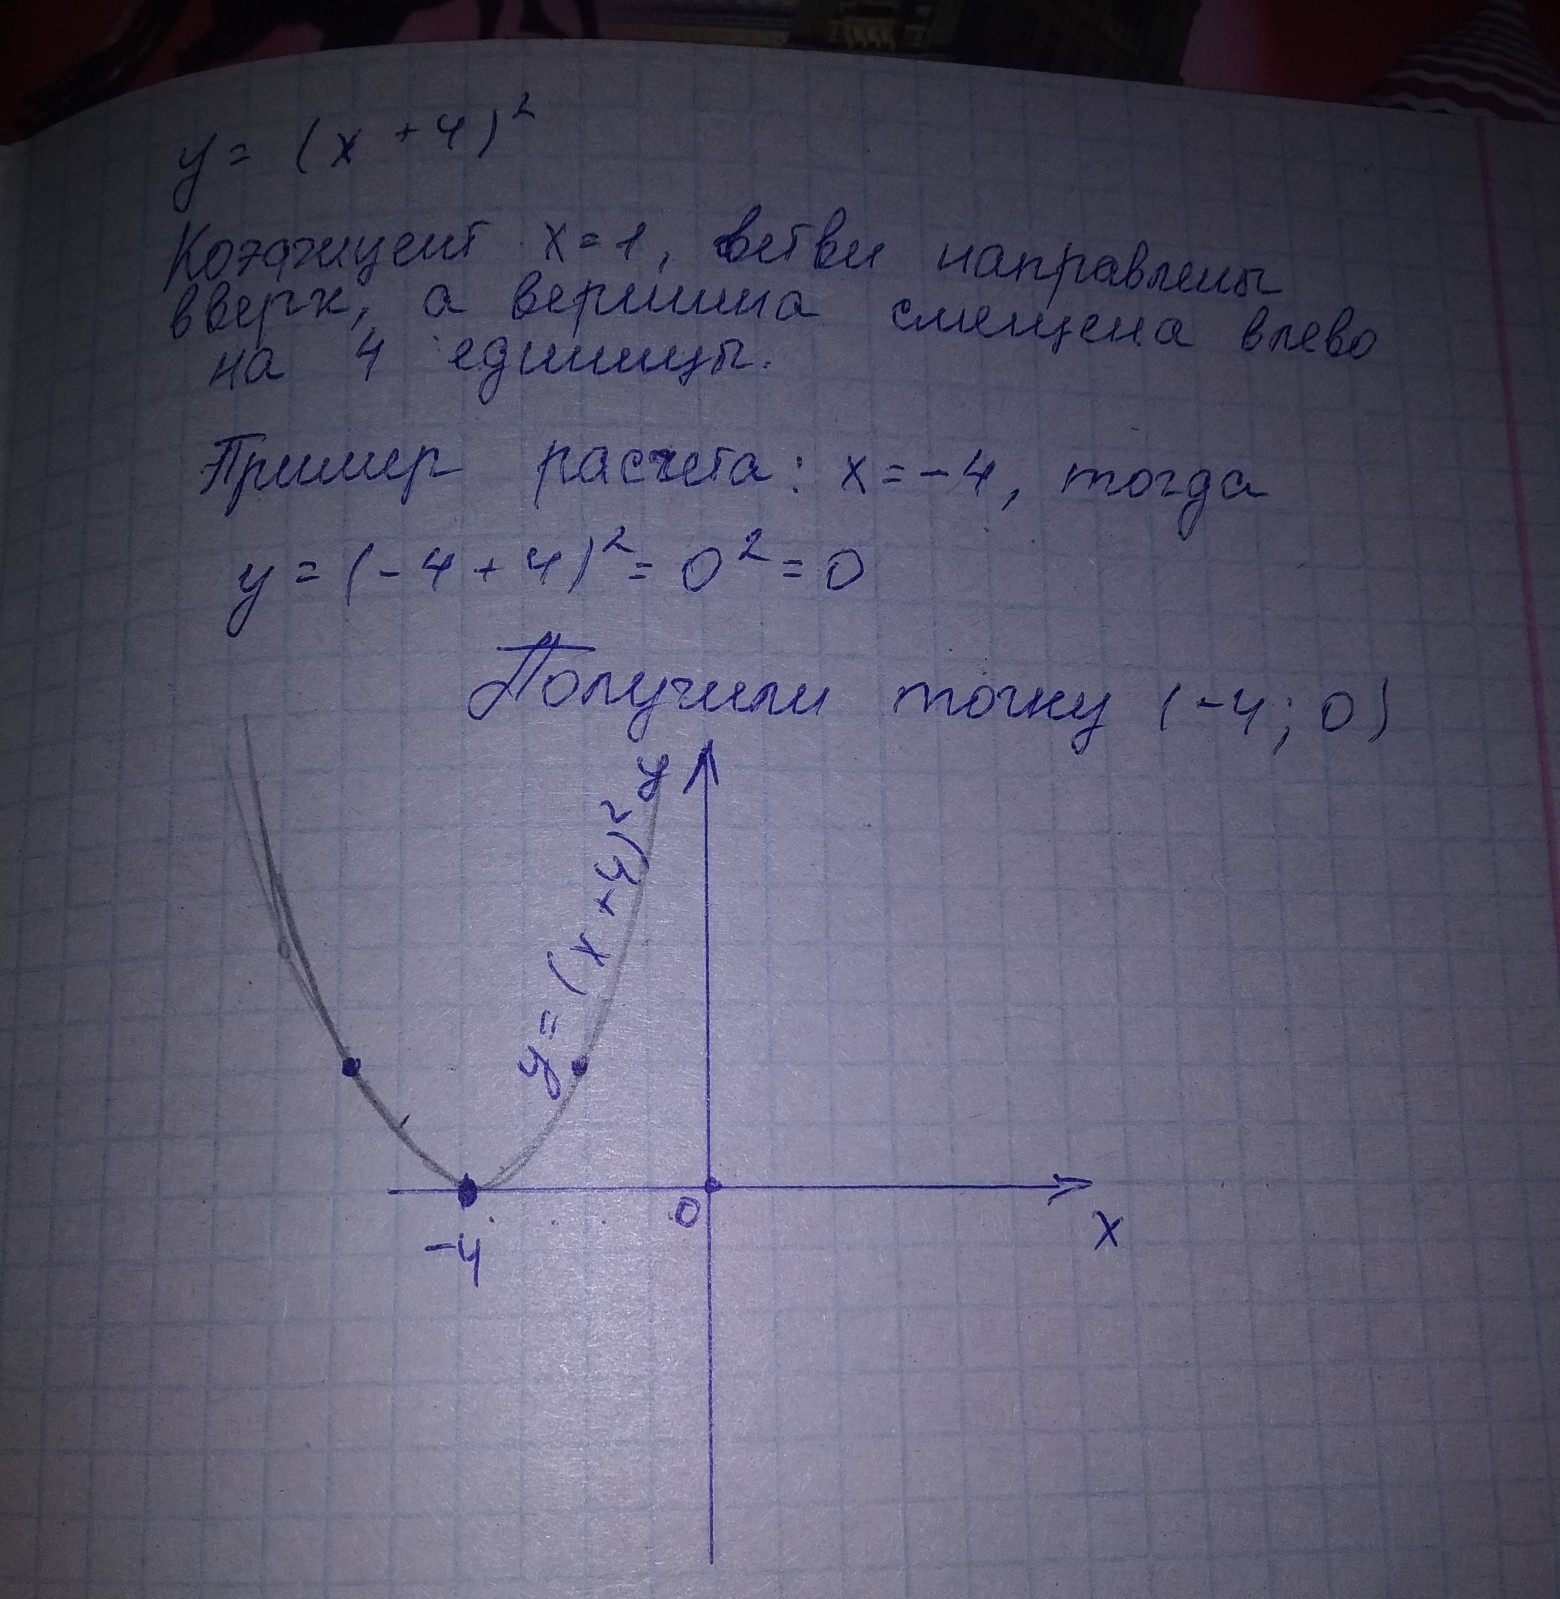 y = (x + 4)²
Коэфицент x = 1, ветви направлены
вверх, а вершина смещена влево
на 4 единицы.
Пример расчета: x = -4, тогда
y = (-4 + 4)² = 0² = 0
Получили точку (-4; 0)
y
y = (x + 4)²
0
x
-4